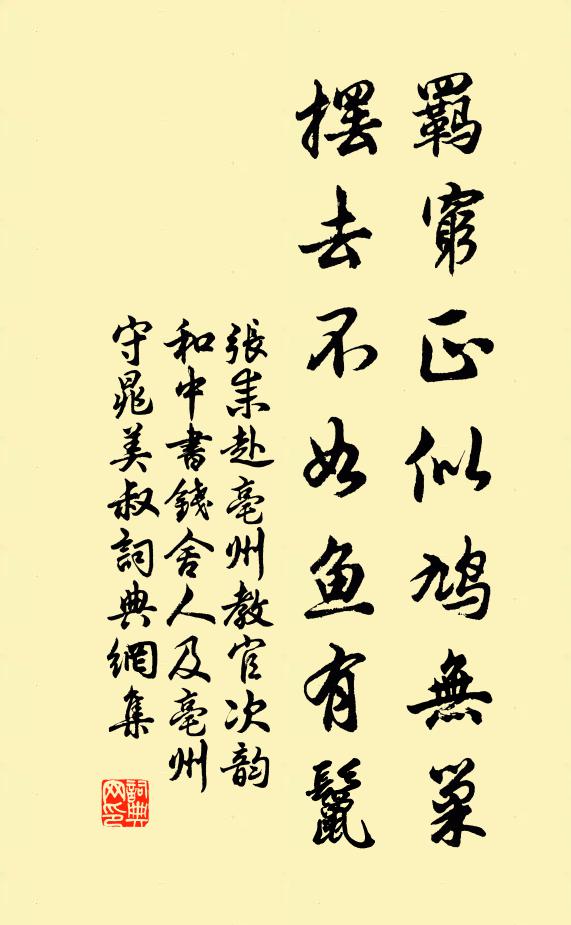 羈窮正似鳩無巢
擺去不如魚有鬣
張耒赴亳州教官次韵
和中書錢舍人及亳州
守晁美叔詞典網集
詞典网印